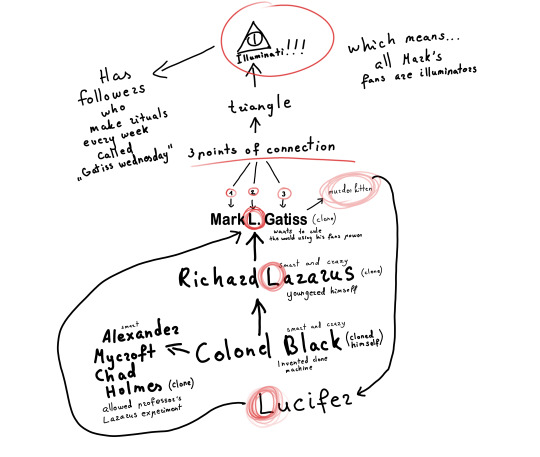 Illuminati!!!
which means...
all Mark's
fans are illuminators
Has
followers
who
make rituals
every week
called
"Gatiss wednesday"
triangle
3 points of connection
1 2 3
murder kitten
Mark L. Gatiss (clone)
wants to rule
the world using his fans power
smart and crazy
Richard Lazarus (clone)
youngered himself
smart
Alexander
Mycroft
Chad
Holmes (clone)
allowed professor's
Lazarus experiment
smart and crazy
Colonel Black (cloned
himself)
Invented clone
machine
Lucifer